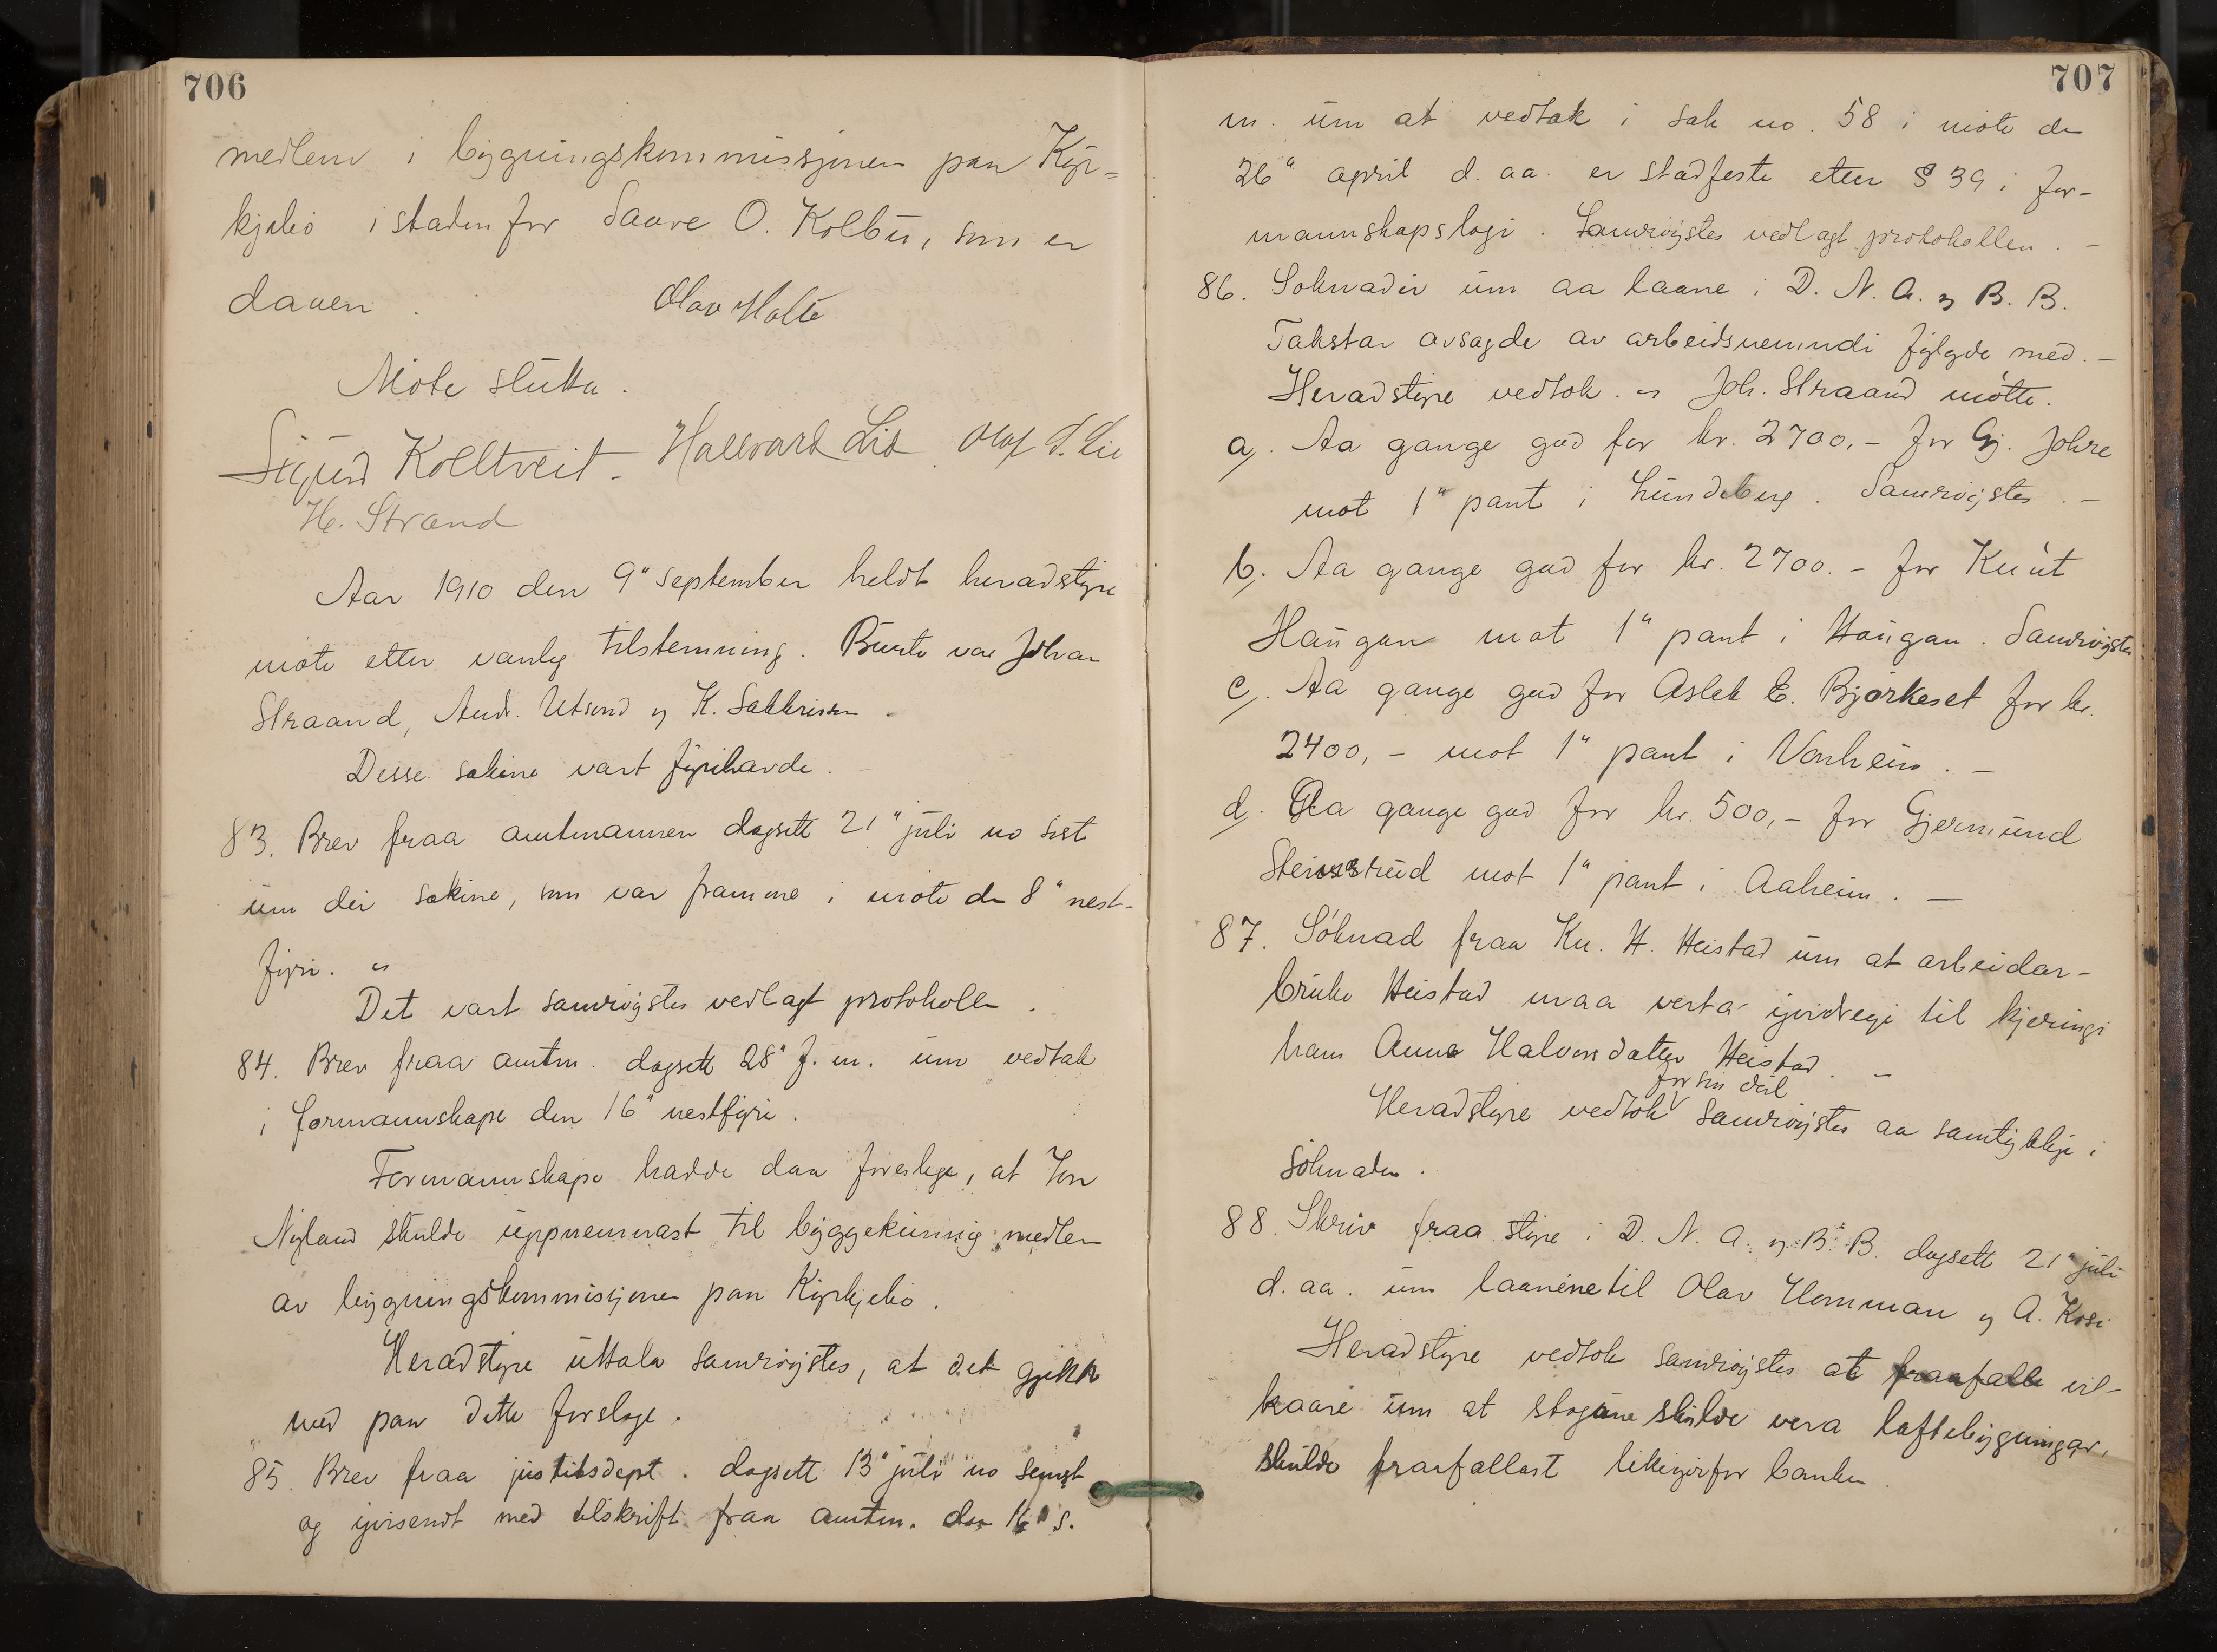 706
medlem i bygningskommissjonen paa Kyr=
kjebö istadenfor Saave O. Kolbu, som er
daaen. Olav Holte
Möte slutta.
Sigurd Kolltveit. Hallvard Lid. Olaf S. Lie
H. Strand
Aar 1910 den 9" september heldt heradstyre
möte etter vanleg tilstemning. Burte var Johan
Straand, Andr. Utsond og K. Sakkrissen.
Desse sakine vart fyrihavde.
83. Brev fraa amtmannen dagsett 21" juli no sist
um dei sakine, som var framme i möte den 8" nest-
fyri. "
Det vart samröystes vedlagt protokollen.
84. Brev fraa amtm. dagsett 28" f. m. um vedtak
i formannskape den 16" nestfyri.
Formannskape hadde daa foreslege, at Jon
Nyland skulde uppnemnast til byggekunnig medlem
av bygningskommissjonen paa Kyrkjebö.
Heradstyre uttala samröystes, at det gjekk
med paa dette forslage.
85. Brev fraa justitsdept. dagsett 13" juli no senst
og yvisendt med tilskrift fraa amtm. den 16" s.
707
m. um at vedtak i sak no. 58 i möte den
26" april d. aa. er stadfeste etter § 39 i for-
mannskapslogi. Samröystes vedlagt protokollen. -
86. Soknader um aa laane i D. N. A. og B. B.
Takstar avsagde av arbeidsnemndi fylgde med. -
Heradstyre vedtok. " Joh. Straand mötte.
a). Aa gange god for kr. 2700,- for Gj. Johre
mot 1" pant i Lundeberg. Samröystes. -
b). Aa gange god for kr. 2700.- for Knut
Haugan mot 1" pant i Haugan. Samröystes.
c). Aa gange god for Aslek E. Björkeset for kr.
2400,- mot 1" pant i Vonheim. -
d). Aa gange god for kr. 500,- for Gjermund
Steinsrud mot 1" pant i Aaheim. -
87. Söknad fraa Kn. H. Heistad um at arbeidar-
bruke Heistad maa verta yvidregi til kjeringi
hans Anne Halvorsdatter Heistad. -
for sin deil
Heradstyre vedtok samröystes aa samtykkje i
söknaden.
88. Skriv fraa styre i D. N. A. og B. B. dagsett 21" juli
d. aa. um laanene til Olav Homman og A. Kosi
Heradstyre vedtok samröystes at fraafalle vil-
kaare um at stogune skulde vera loftsbygningar,
skulde fraafallast likeyvifor banken.